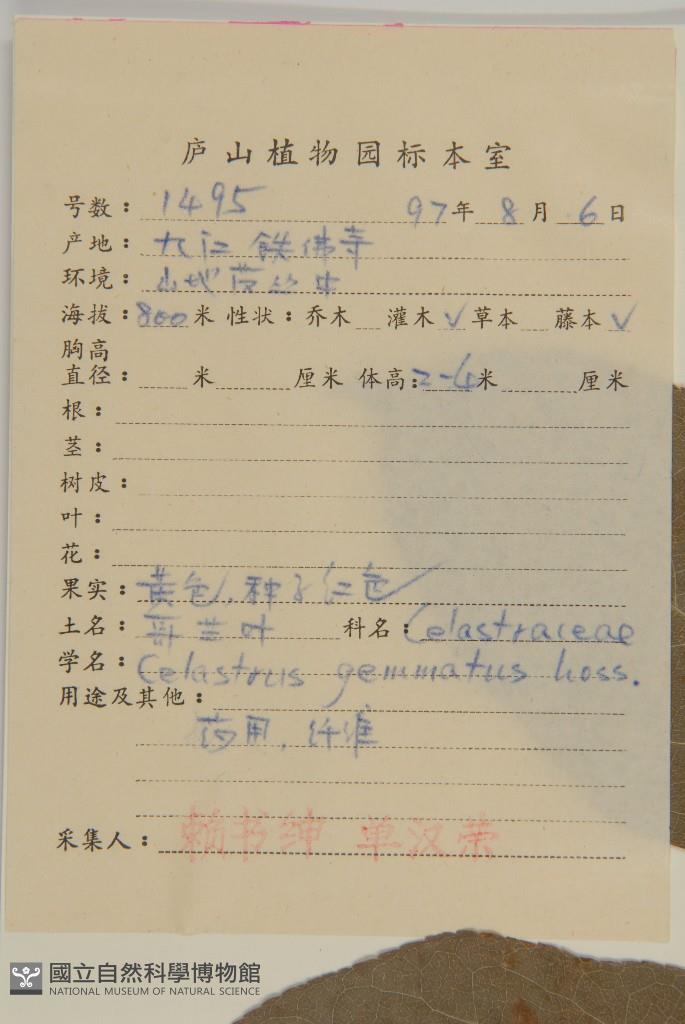 庐山植物园标本室
号数： 1495 97年 8月 6日
产地： 九江 铁佛寺
环境： 山地
海拔： 800米 性状： 乔木 灌木√ 草本 藤本√
胸高
直径： 米 厘米 体高： 2-4米 厘米
根：
茎：
树皮：
叶：
花：
果实： 黄色，种子红色
土名： 哥兰叶 科名： Celastraceae
学名： Celastrus gemmatus Loes.
用途及其他：
药用，纤维
采集人： 赖书绅 单汉荣
國立自然科學博物館
NATIONAL MUSEUM OF NATURAL SCIENCE